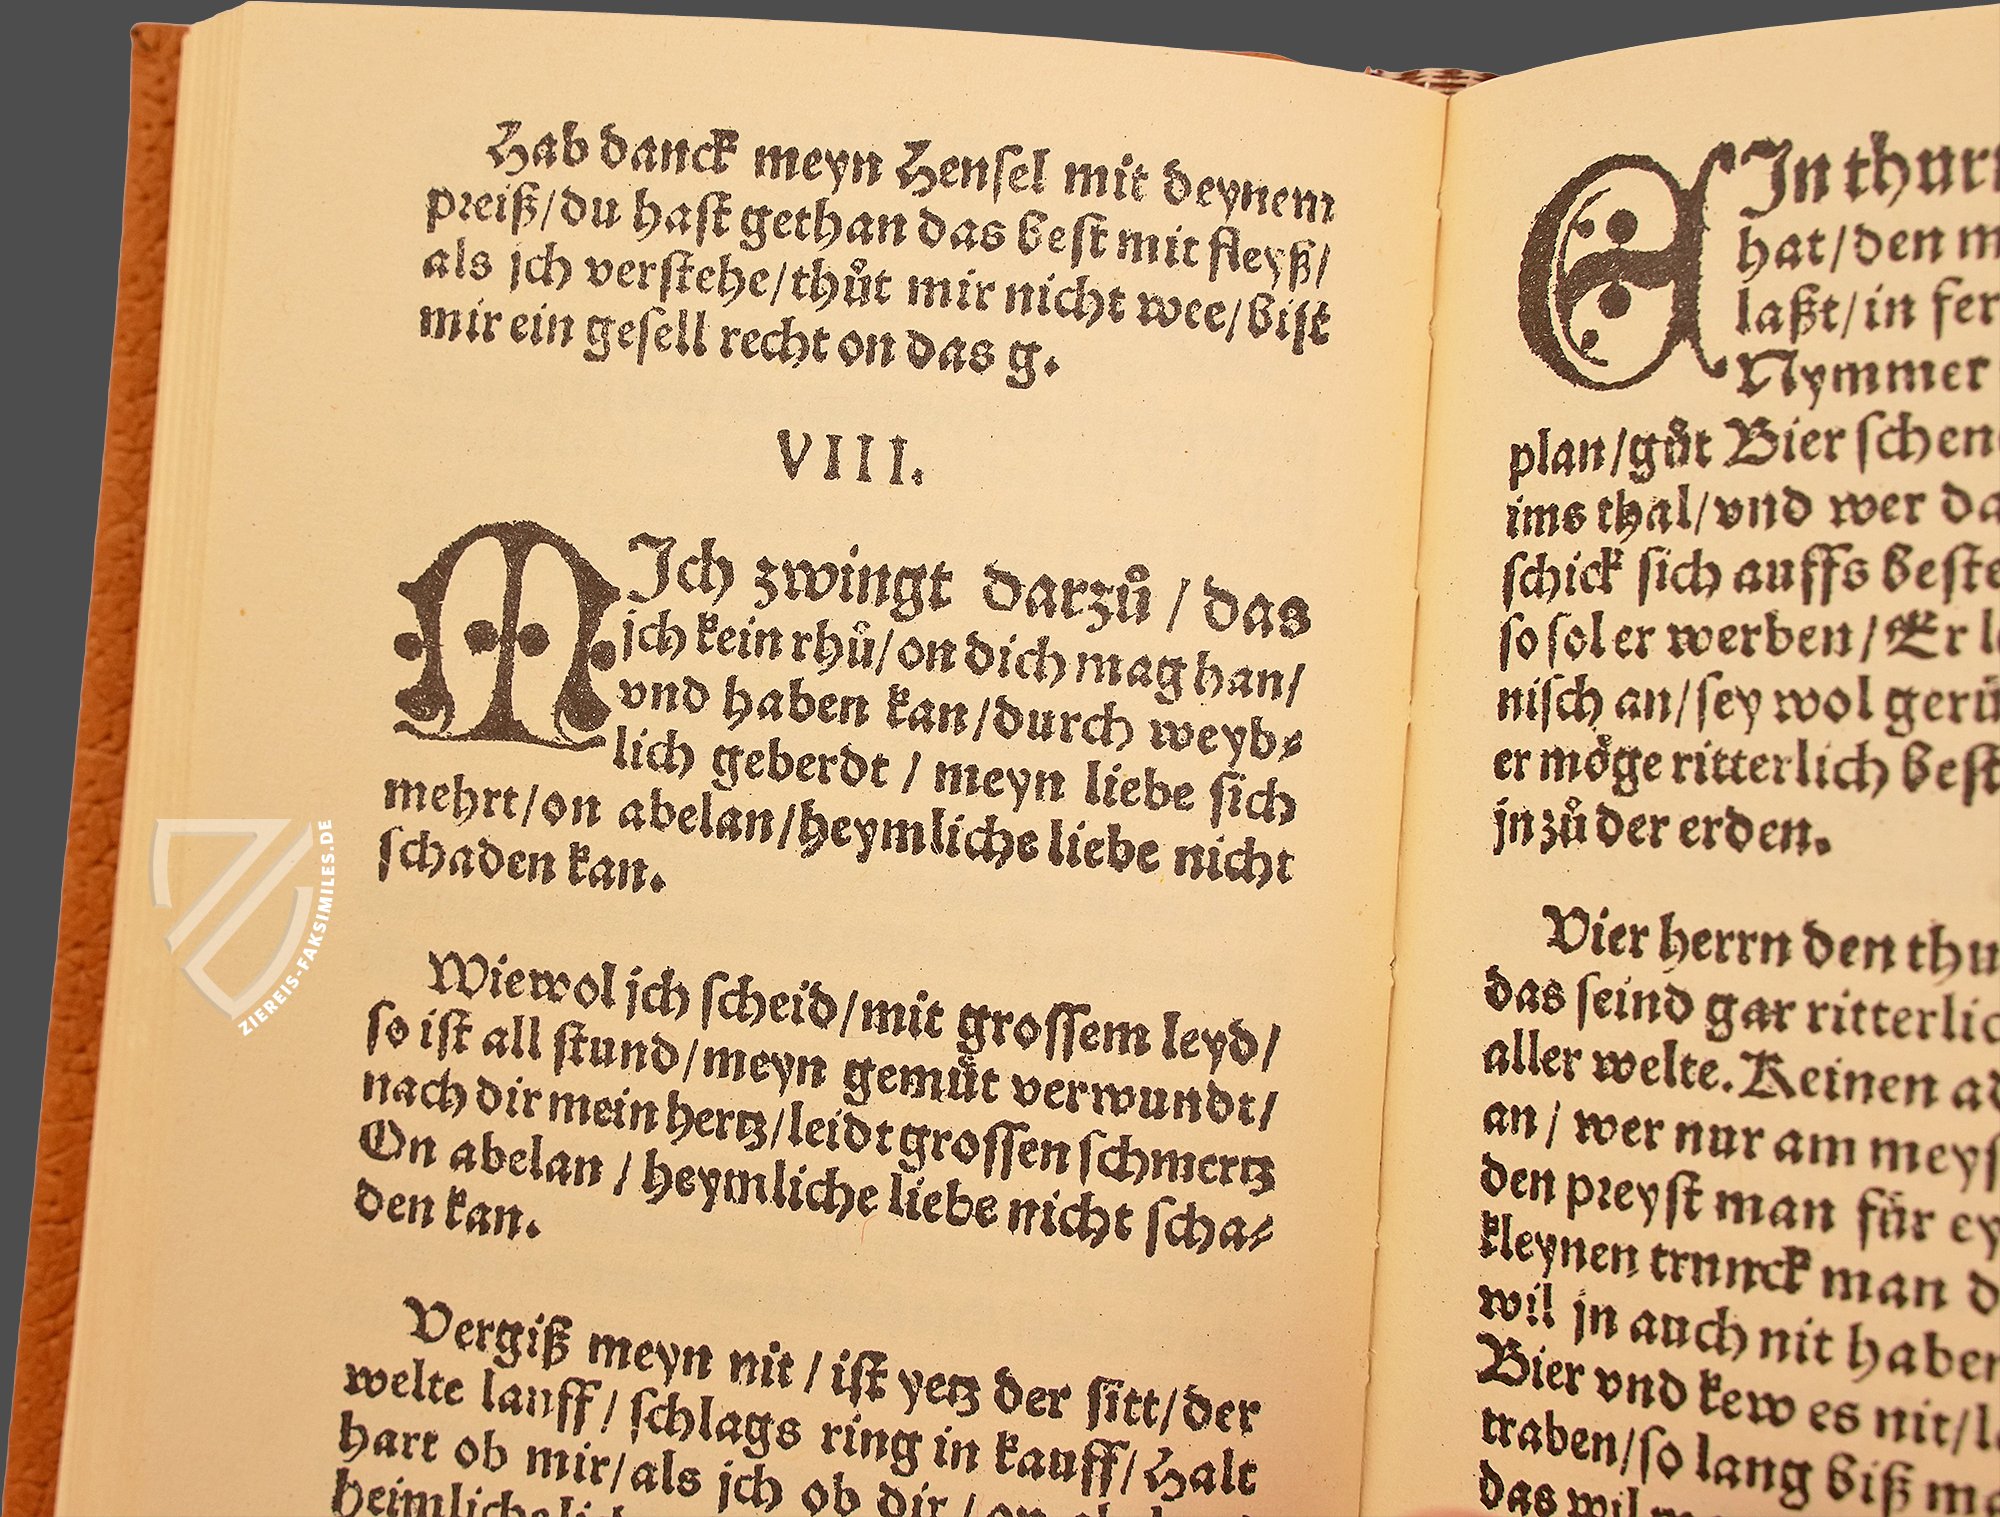 Hab danck meyn Hensel mit deynem
preiß/du hast gethan das best mit fleyß/
als jch verstehe/thůt mir nicht wee/bist
mir ein gesell recht on das g.
VIII.
MIch zwingt darzů / das
jch kein rhů/on dich mag han/
vnd haben kan/durch weyb⸗
lich geberdt / meyn liebe sich
mehrt/on abelan/heymliche liebe nicht
schaden kan.
Wiewol jch scheid/mit grossem leyd/
so ist all stund/meyn gemůt verwundt/
nach dir mein hertz/leidt grossen schmertz
On abelan / heymliche liebe nicht scha⸗
den kan.
Vergiß meyn nit / ist yetz der sitt/der
welte lauff/ schlags ring in kauff/Halt
hart ob mir/als jch ob dir / on
ZIEREIS-FAKSIMILES.DE
EIn
hat/den
laßt/in
Nymmer
plan/gůt Bier
ims thal/vnd wer
schick sich auffs beste
so sol er werben/Er
nisch an/sey wol
er möge ritterlich
jn zů der erden.
Vier herrn den
das seind gar
aller welte. Keinen
an / wer nur am
den preyst man für
kleynen trunck man
wil jn auch nit haben
Bier vnd kew es nit/
traben/so lang biß
das wil